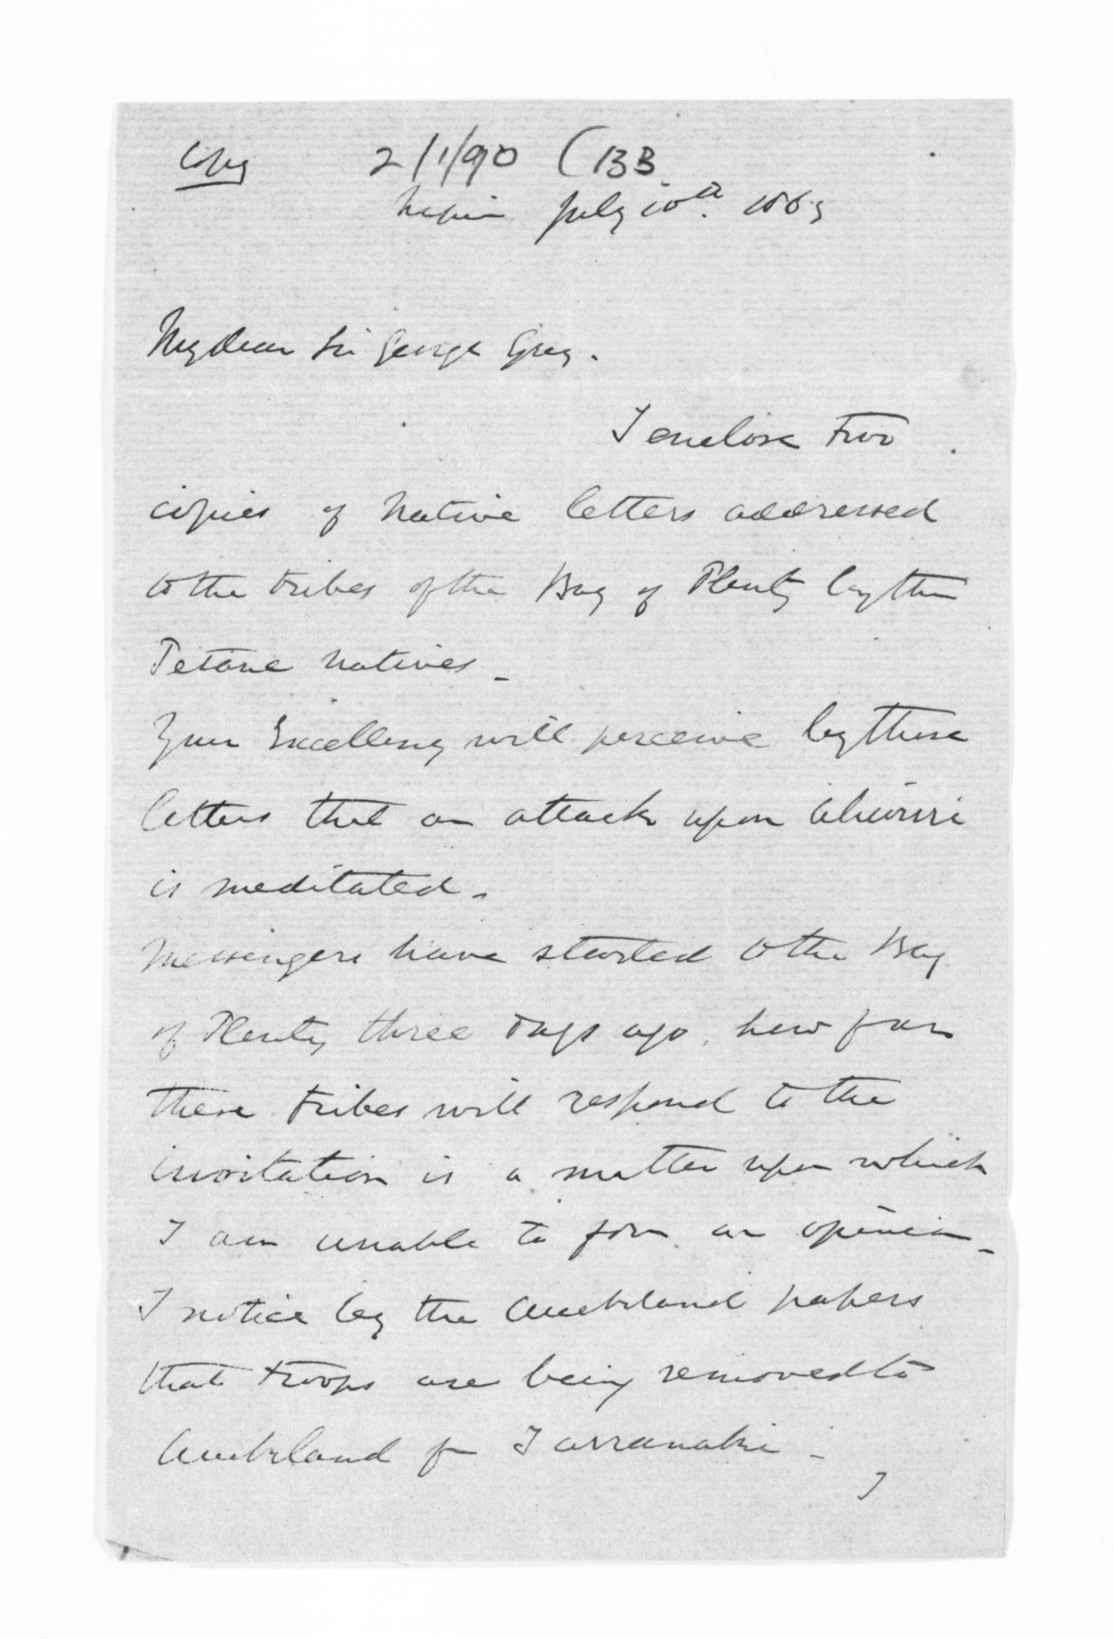 Copy 2/1/90 (13B
Napier July 10th. 1863
My dear Sir George Grey.
I enclose two
copies of Native letters addressed
to the tribes of the Bay of Plenty by the
Petane Natives_
Your Excellency will perceive by these
letters that an attack upon Ahuriri
is meditated_
Messengers have started to the Bay
of Plenty three days ago, how far
these tribes will respond to the
invitation is a matter upon which
I am unable to form an opinion_
I notice by the Auckland papers
that troops are being removed to
Auckland from Tarranaki_
I